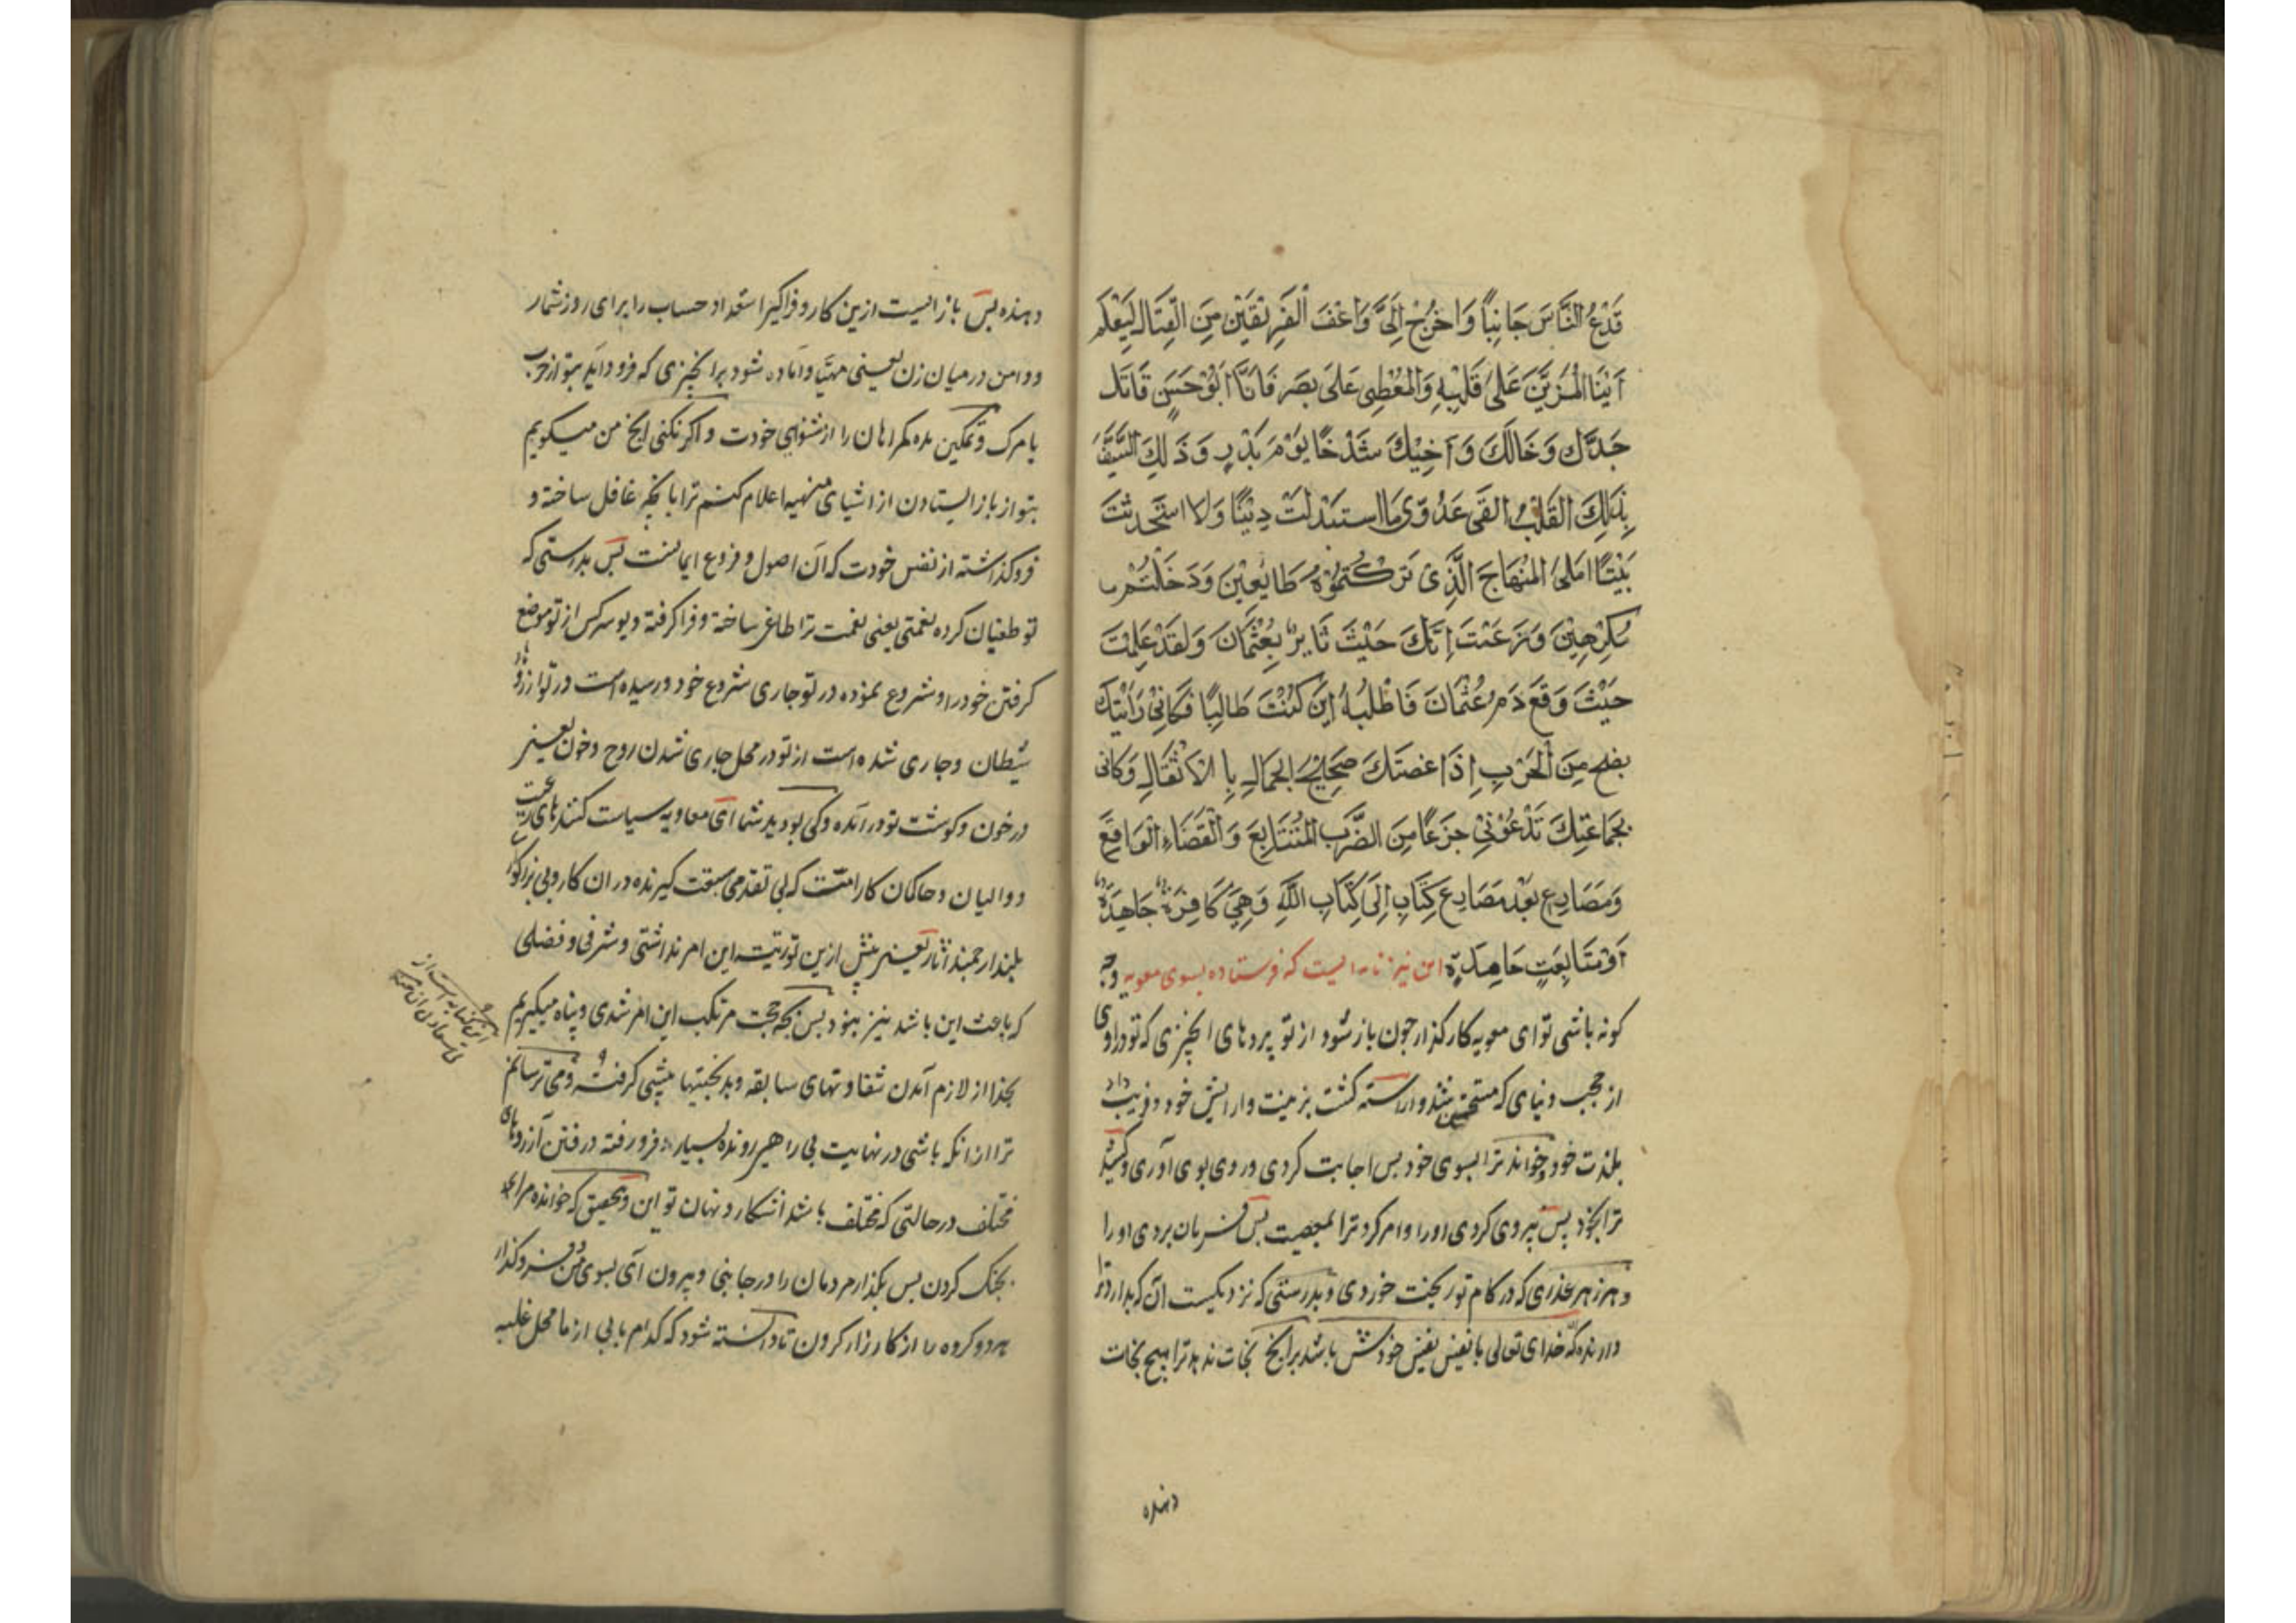 فَدَعِ النَّاسَ جَانِبًا وَاخْرُجْ اِلَیَّ وَاعْفَ الْفَرِیْقَیْنِ مِنَ الْقِتَالِ لِیَعْلَمَ
اَیُّنَا الْمُرَیَّنُ عَلٰی قَلْبِهِ وَالْمُغَطّٰی عَلٰی بَصَرِ فَاَنَا اَبُوْ حَسَنٍ قَاتِلُ
جَدِّكَ وَخَالَكَ وَاَخِیْكَ شَدْخًا یَوْمَ بَدْرٍ وَذٰلِكَ السَّیْفُ
بِذٰلِكَ الْقَلْبِ اَلْقٰی عَدُوِّی مَا اسْتَبْدَلْتُ دِیْنًا وَلَا اسْتَحْدَثْتُ
نَبِیًّا اعلی المِنْهَاجِ الَّذِیْ تَرَكْتُمُوْهُ طَایِعِیْنَ وَدَخَلْتُمْ
مُكْرَهِیْنَ وَزَعَمْتَ اِنَّكَ حَیْثَ ثَایِرٌ بِعُثْمَانَ وَلَقَدْ عَلِمْتَ
حَیْثُ وَقَعَ دَمُ عُثْمَانَ فَاطْلُبْهُ اِنْ كُنْتَ طَالِبًا فَكَاَنِّیْ رَاَیْتُكَ
مِنَ الْحَرْبِ اِذَا عضتك ضَجِیْجَ الجِمَالِ بِالْاَثْقَالِ وَكَانی
بِجَمَاعَتِكَ تَدْعُوْنِیْ جَزَعًا مِنَ الضَّرْبِ الْمُتَتَابِعِ وَالْقَضَاءِ الْوَاقِعِ
وَمَصَارِعٍ بَعْدَ مَصَارِعَ كِتَابٍ اِلٰی كِتَابِ اللّٰهِ وَهِیَ كَافِرَةٌ جَاهِدَةٌ
اَوْ مُتَابِعَةٍ حَاهِدَةٍ این نیز نامه ایست که فرستاده بسوی معویه و چه
کونه باشی تو ای معویه کارکذار چون باز شود از تو پردهای انچیزی که تو دراوی
از حجب دنیای که مستحق شد واراسته کشت بزینت وارایش خود و فریب داد
بلذت خود و خواند ترا بسوی خود بس اجابت کردی و روی بوی آوری و کشید
ترا بخود پس پیروی کردی اورا و امر کرد ترا بمعصیت بس فرمان بردی او را
وهر زهر عذری که در کام تو ریخت خوردی وبدرستی که نزدیکست آن که بدارد ترا
دارنده که خدای تعالی با نفیس خودش باشد برانچ نجات ندهد ترا هیچ نجات
دهنده
دهنده بس باز ایست ازین کار و فراکیر استعداد حساب را برای روز شمار
ودامن درمیان زن یعنی مهیّا واماده شو برانچیزی که فرود آید بتو از حرب
یا مرک وتمکین مده کمراهان را از شنوای خودت واکر نکنی انچ من میکویم
بتو از باز ایستادن از اشیای منهیه اعلام کنم ترا بانچه غافل ساخته و
فروکذاشته از نفس خودت که آن اصول و فروع ایمانست بس بدرستی که
تو طغیان کرده نعمتی یعنی نعمت ترا طاغی ساخته وفراکرفته دیو سرکس از تو موضع
کرفتن خود را و شروع نموده در تو جاری شروع خود ورسیده است در تو ارزو
شیطان وجاری شده است از تو در محل جاری شدن روح وخون یعنی
در خون وکوشت تو درآمده وکی بودید شما ای معاویه سیاست کنندهای رعیت
ووالیان وحاکمان کار امت که بی تقدمی سبقت کیرنده دران کار وبی بزرکوار
بلند ارجمند اثار یعنی پیش ازین تو رتبت این امر نداشتی وشرفی وفضلی
که باعث این باشد نیز نبود بس بچه حجت مرتکب این امر شدی وپناه میکیریم
بخدا از لازم آمدن شقاوتهای سابقه وبدبختیها پیشی کرفته ومی ترسانم
ترا ازانکه باشی در نهایت بی راهی رونده بسیار فرو رفته در فتن آرزوهای
مختلف در حالتی که مختلف باشد اشکار ونهان تو این وتحقیق که خوانده مرا
بجنک کردن بس بکذار مردمان را در جانبی وبیرون آی بسوی من وفروکذار
هر دو کروه را از کارزار کردن تا دانسته شود که کدام یابی از ما محل غلبه